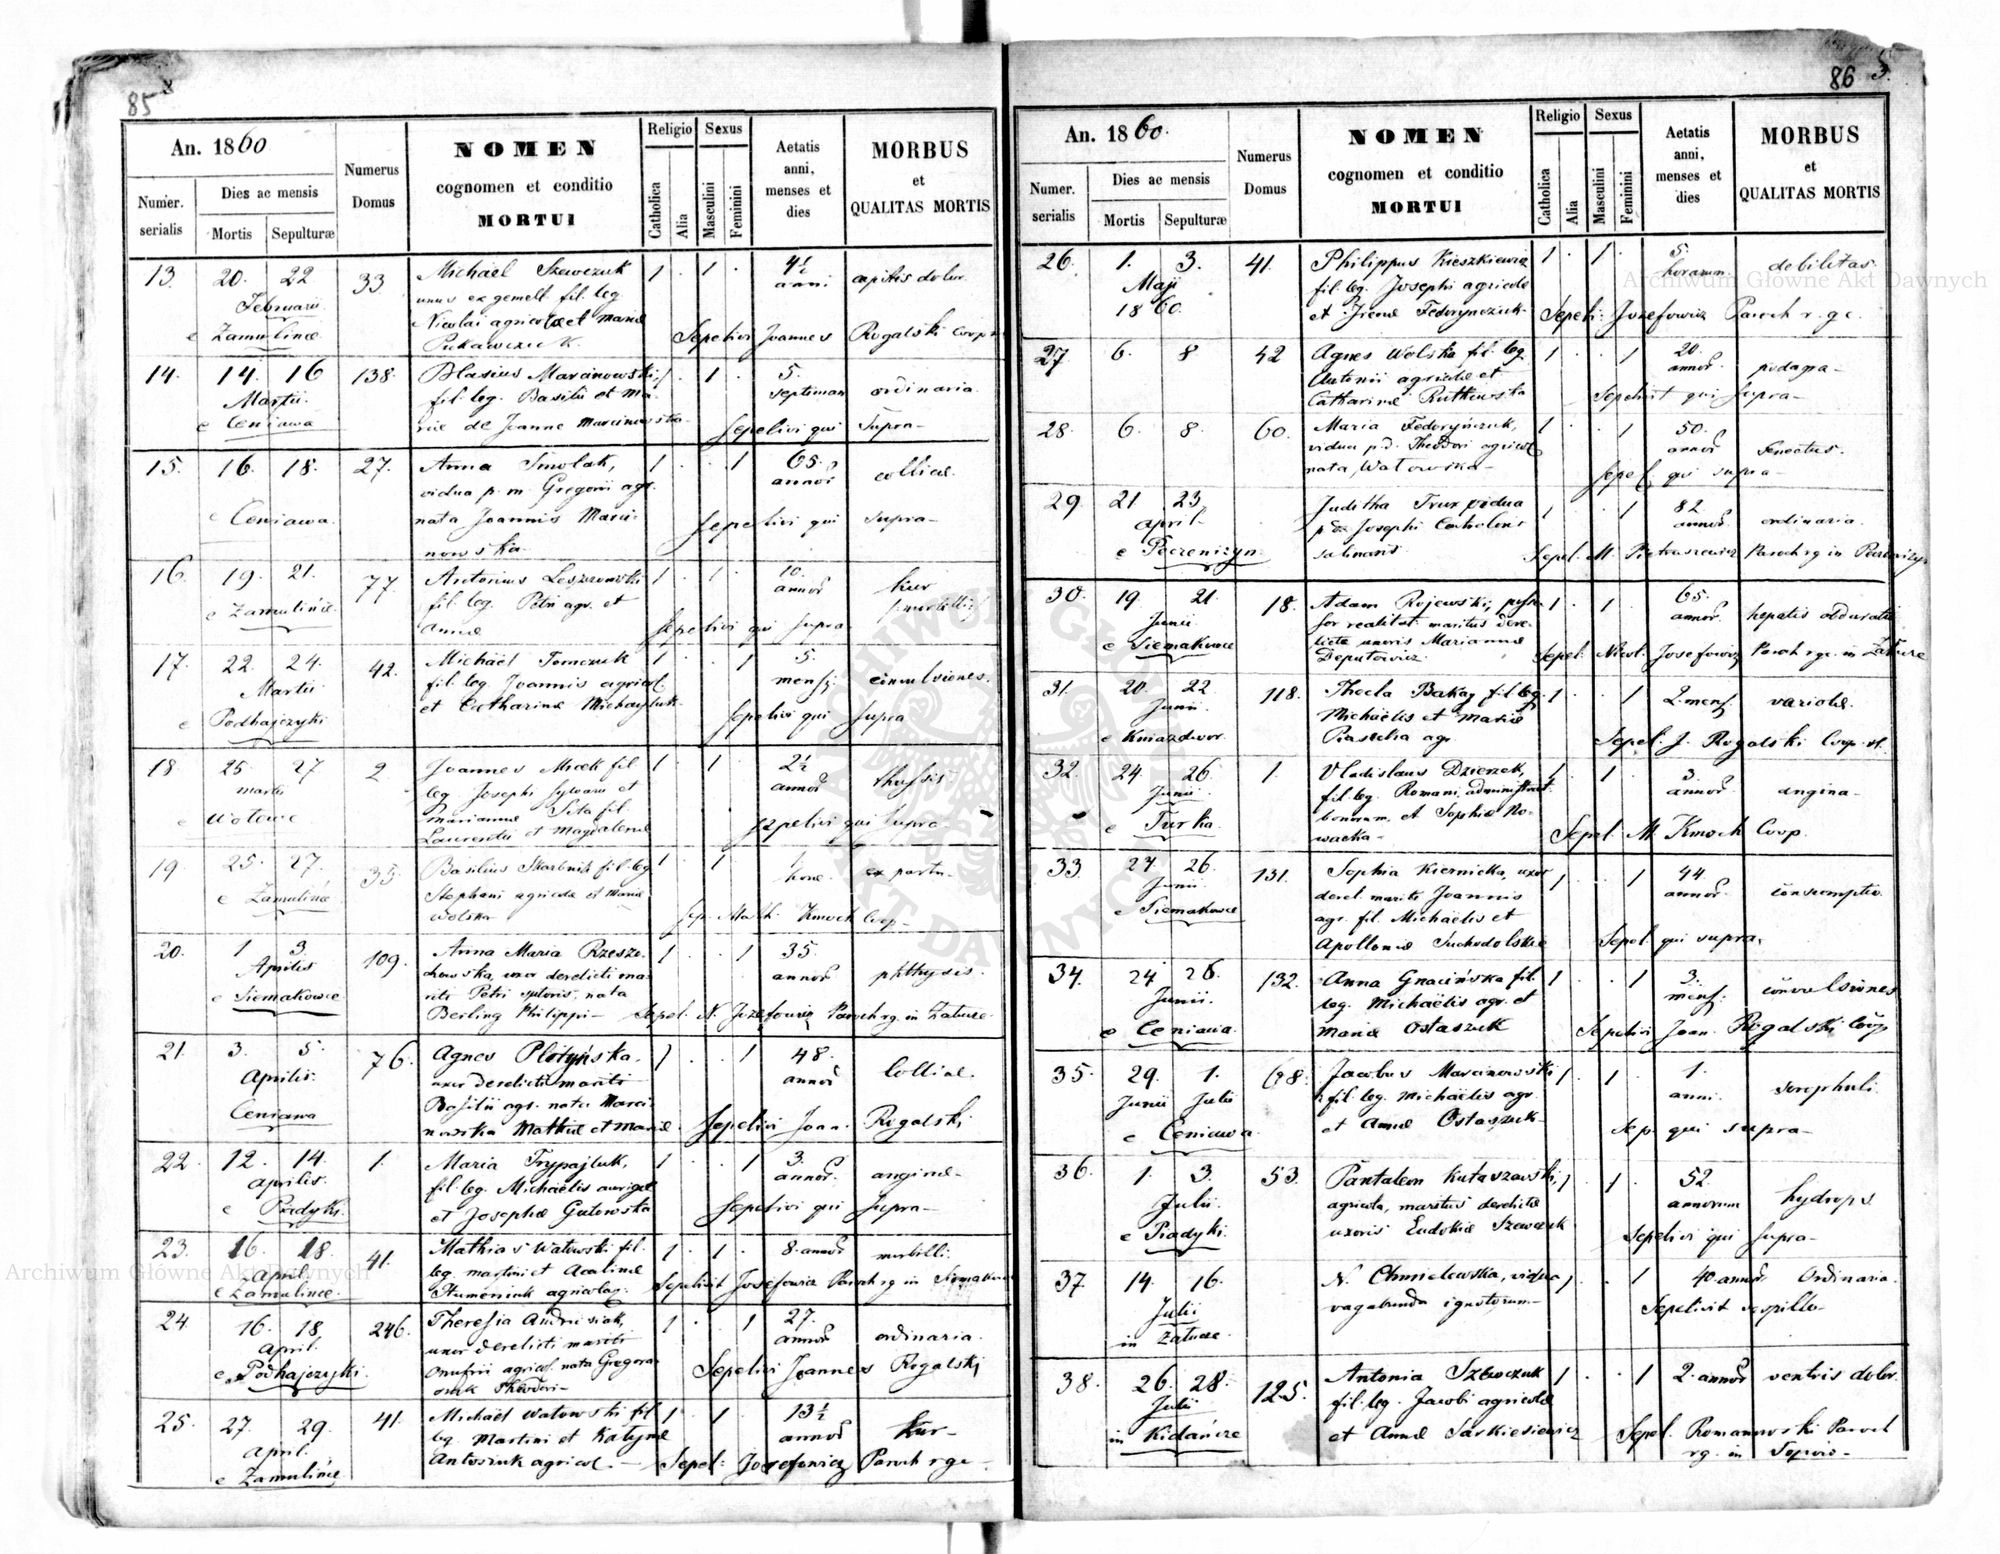 85
An. 1860
Numer. serialis
Dies ac mensis
Mortis
Sepulturæ
Numerus Domus
NOMEN
cognomen et conditio
MORTUI
Religio
Catholica
Alia
Sexus
Masculini
Feminini
Aetatis anni, menses et dies
MORBUS
et
QUALITAS MORTIS
13. 20. 22 33 Michaël Szewczuk 1 . 1 . 4½ capitis dolor
Februarii unus ex gemell. fil. leg. anni
e Zamulince Nicolai agricolæ et Mariæ Sepelivi Joannes Rogalski Coop
Pukawczuk.
14. 14. 16 138. Blasius Marcinowski, 1 . 1 . 5. ordinaria.
Martii. fil. leg. Basilii et Ma- septiman
e Ceniawa riæ de Joanne Marcinowska. Sepelivi qui Supra-
15. 16. 18. 27. Anna Smolak, 1 . . 1 65. collicæ.
vidua p. m. Gregorii agr. annor
e Ceniawa. nata Joannis Marci- Sepelivi qui supra-
nowska.
16. 19. 21. 77. Antonius Leszczowski 1 . 1 . 10. kur
e Zamulińce. fil. leg. Petri agr. et annor (morbilli)
Annæ Sepelivi qui supra
17. 22. 24. 42. Michaël Tomczuk 1 . . 1 5. convulsiones.
Martii fil. leg. Joannis agricol. mens.
e Podhajczyki et Catharinæ Michayluk Sepelivi qui supra
18 25. 27 2. Joannes Micek fil 1 . 1 . 2½
martii leg. Josephi Sylwani et annor
e Wołowe Mariannæ Sita fil.
Laurentii et Magdalenæ Sepelivi qui supra-
19. 25. 27. 35. Basilius Skarbnik fil. leg. 1 . 1 . 1 ex partu-
e Zamulińce Stephani agricolæ et Mariæ horæ
Wolska Sep. Math. Kmoch Coop-
20. 1 3. 109. Anna Maria Rzeszo- 1 . . 1 35 phthysis.
Aprilis towska, uxor derelicti ma- annor
e Siemakowce riti Petri sutoris, nata
Berling Philippi- Sepel. N. Jozefowicz Paroch rg. in Zahucze-
21. 3. 5. 76. Agnes Płotyńska. 1 . . 1 48. Collicæ.
Aprilis. uxor derelicti mariti annor
Ceniawa Basilii agr. nata Marci-
nowska Mathiæ et Mariæ Sepelivi Joan. Rogalski
22. 12. 14. 1. Maria Trypajluk, 1 . . 1 3. anginæ-
aprilis. fil. leg. Michaëlis aurigæ annor.
e Piadyki. et Josephæ Gutowska Sepelivi qui supra-
23. 16. 18. 41. Mathias Watowski fil. 1 . 1 . 8. annor morbilli.
April. leg. Martini et Acalinæ
e Zamulince. Humeniuk agricolæ. Sepelivit Josefowicz Paroch rg in Siemakowce
24 16. 18. 246. Theresia Andrusiak, 1 . . 1 27. ordinaria.
April. uxor derelicti mariti annor
e Podhajczyki. Onufrii agricol. nata Gregora- Sepelivi Joannes Rogalski
szuk Theodori-
25. 27. 29. 41. Michaël Watowski fil 1 . 1 . 13½ kur-
April. leg. Martini et Katynæ annor
e Zamulińce Antosiuk agricol.- Sepel: Josefowicz Paroch rgc-
86
5.
An. 1860.
Numer. serialis
Dies ac mensis
Mortis
Sepulturæ
Numerus Domus
NOMEN
cognomen et conditio
MORTUI
Religio
Catholica
Alia
Sexus
Masculini
Feminini
Aetatis anni, menses et dies
MORBUS
et
QUALITAS MORTIS
26. 1. 3. 41. Philippus Kieszkiewicz 1 . 1 . 5. debilitas.
Maji fil. leg. Josephi agricolæ horarum
1860. et Irenæ Fedorynczuk. Sepel: Jozefowicz Paroch r. g c.
27 6. 8 42 Agnes Wolska fil. leg. 1 . . 1 20. podagra-
Antonii agricolæ et annor.
Catharinæ Rutkowska Sepelivit qui supra-
28. 6. 8 60. Maria Fedoryńczuk, 1 . . 1 50. Senectus.
vidua p. d. Theodori agricol annor
nata, Watowska- Sepel qui supra-
29. 21 23. Juditha Trux vidua 1 . . 1 82 ordinaria.
april. p d. Josephi annor.
e Peczeniżyn. salinaris Sepel. M. Pietruszewicz Paroch rg in Peczeniżyn
30. 19 21. 18. Adam Rojewski, posses- 1 . 1 . 65. hepatis obduratio
Junii. sor realitat. maritus dere- annor.
e Siemakowce lictæ uxoris Mariannæ
Deputowicz. Sepel: Nicol. Josefowicz Paroch rgc. in Zahucze
31. 20. 22 118. Thecla Bakay fil. leg. 1 . . 1 2. mens. variolæ.
Junii. Michaëlis et Mariæ
e Kniazdwor. Piasecka agr. Sepel. J. Rogalski Coop.
32. 24. 26. 1. Vladislaus Dzierzek, 1 . 1 . 3. angina-
Junii. fil. leg. Romani, administrat. annor
e Turka. bonorum. et Sophiæ No-
wacka- Sepel. M. Kmoch Coop.
33. 24 26. 131. Sophia Kiernicka, uxor 1 . . 1 44. consumptio.
Junii. derel. mariti Joannis annor.
e Siemakowce agr. fil. Michaëlis et
Apolloniæ Suchodolskiæ Sepel. qui supra,
34. 24 26. 132. Anna Gnacińska fil. 1 . . 1 3. convulsiones
Junii. leg. Michaëlis agr. et mens.
e Ceniawa. Mariæ Ostaszuk Sepelivi Joan. Rogalski Coop
35. 29. 1. 68. Jacobus Marcinowski 1 . 1 . 1. scrophuli.
Junii Julii fil. leg. Michaëlis agr. anni.
e Ceniawa et Annæ Ostaszuk- Sep. qui supra-
36. 1. 3. 53. Pantaleon Kutaszewski, 1 . 1 . 52. hydrops
Julii. agricola, maritus derelictæ annorum
e Piadyki. uxoris Eudokiæ Szewczuk Sepelivi qui supra-
37. 14. 16. N. Chmielewska, vidua 1 . . 1 40. annor. Ordinaria.
Julii vagabunda ignotorum-
in Zahucze. Sepelivit vespillo-
38. 26. 28. 125. Antonia Szewczuk 1 . . 1 2. annor ventris dolor.
Julii fil. leg. Jacobi agricolæ
in Kidańcze et Annæ Sarkiesiewicz Sepel. Romanowski Paroch
rg. in
Archiwum Główne Akt Dawnych
Archiwum Główne Akt Dawnych
ARCHIWUM GŁÓWNE AKT DAWNYCH